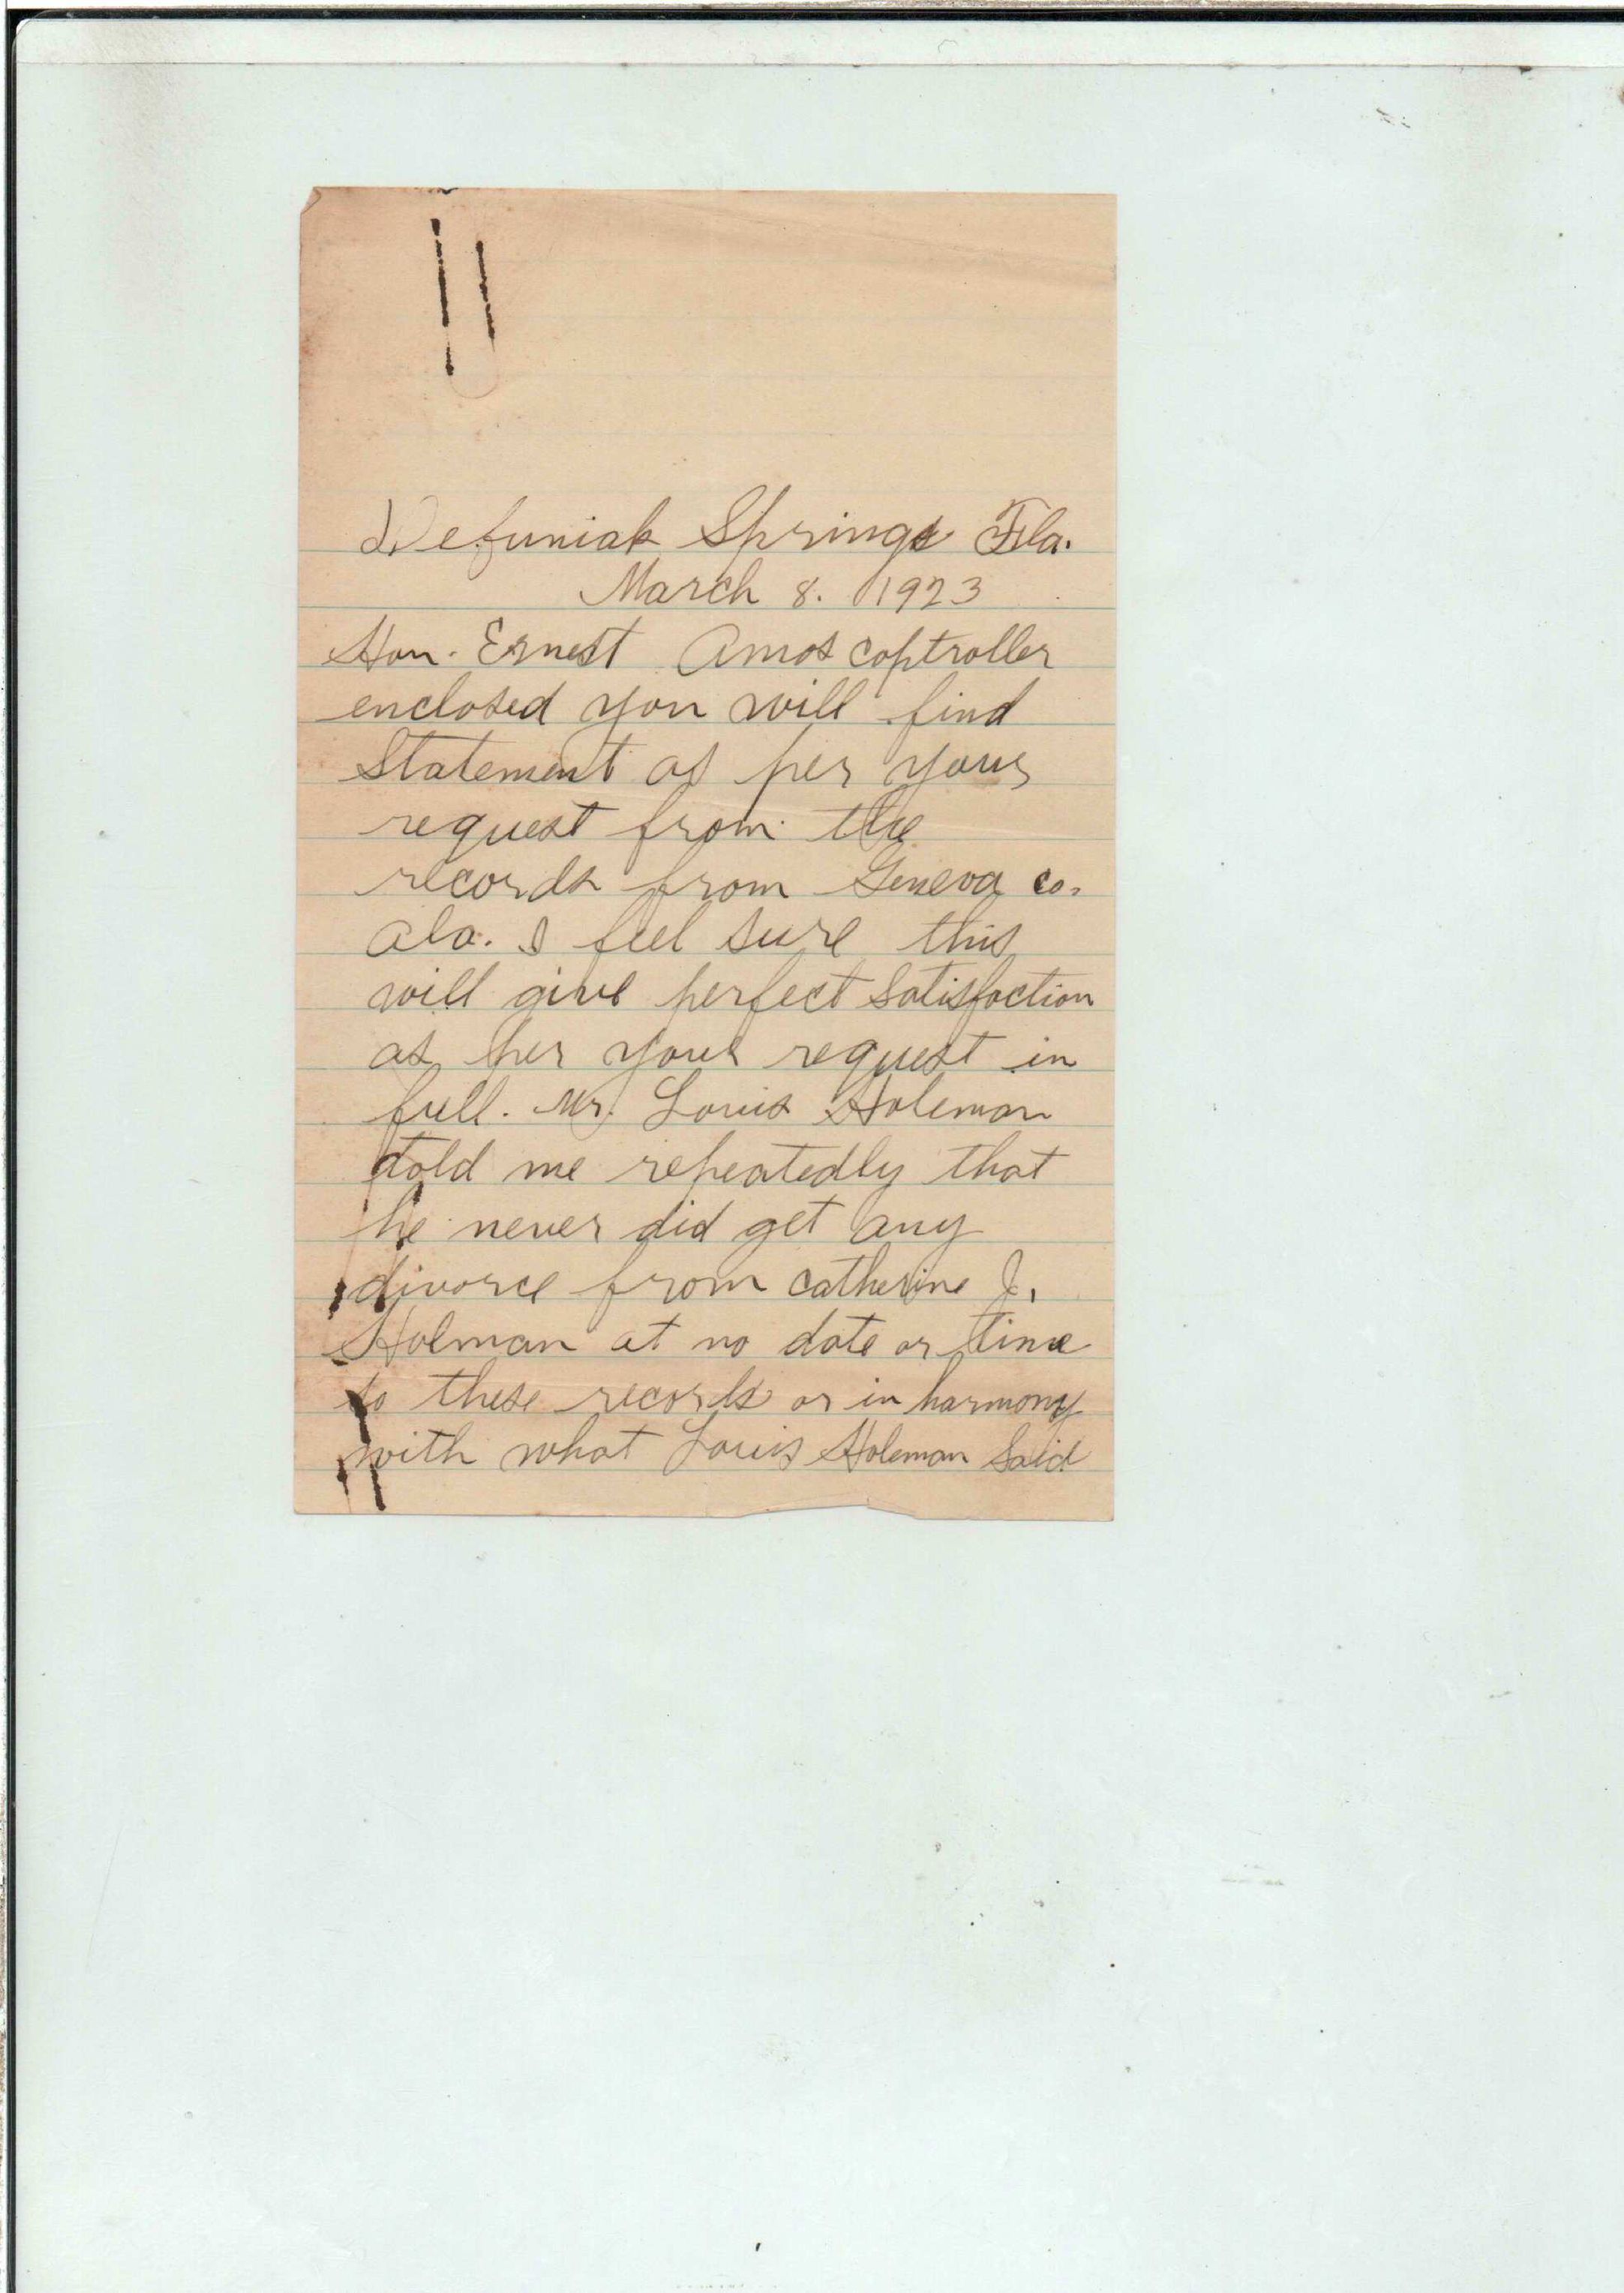 Defuniak Springs Fla.
March 8. 1923
Hon. Ernest Amos coptroller
enclosed you will find
Statement as per your
request from the
records from Geneva co.
Ala. I feel sure this
will give perfect satisfaction
as per your request in
full. Mr. Louis Holeman
told me repeatedly that
he never did get any
divorce from Catherine J.
Holman at no date or time
to these records or in harmony
with what Louis Holeman Said